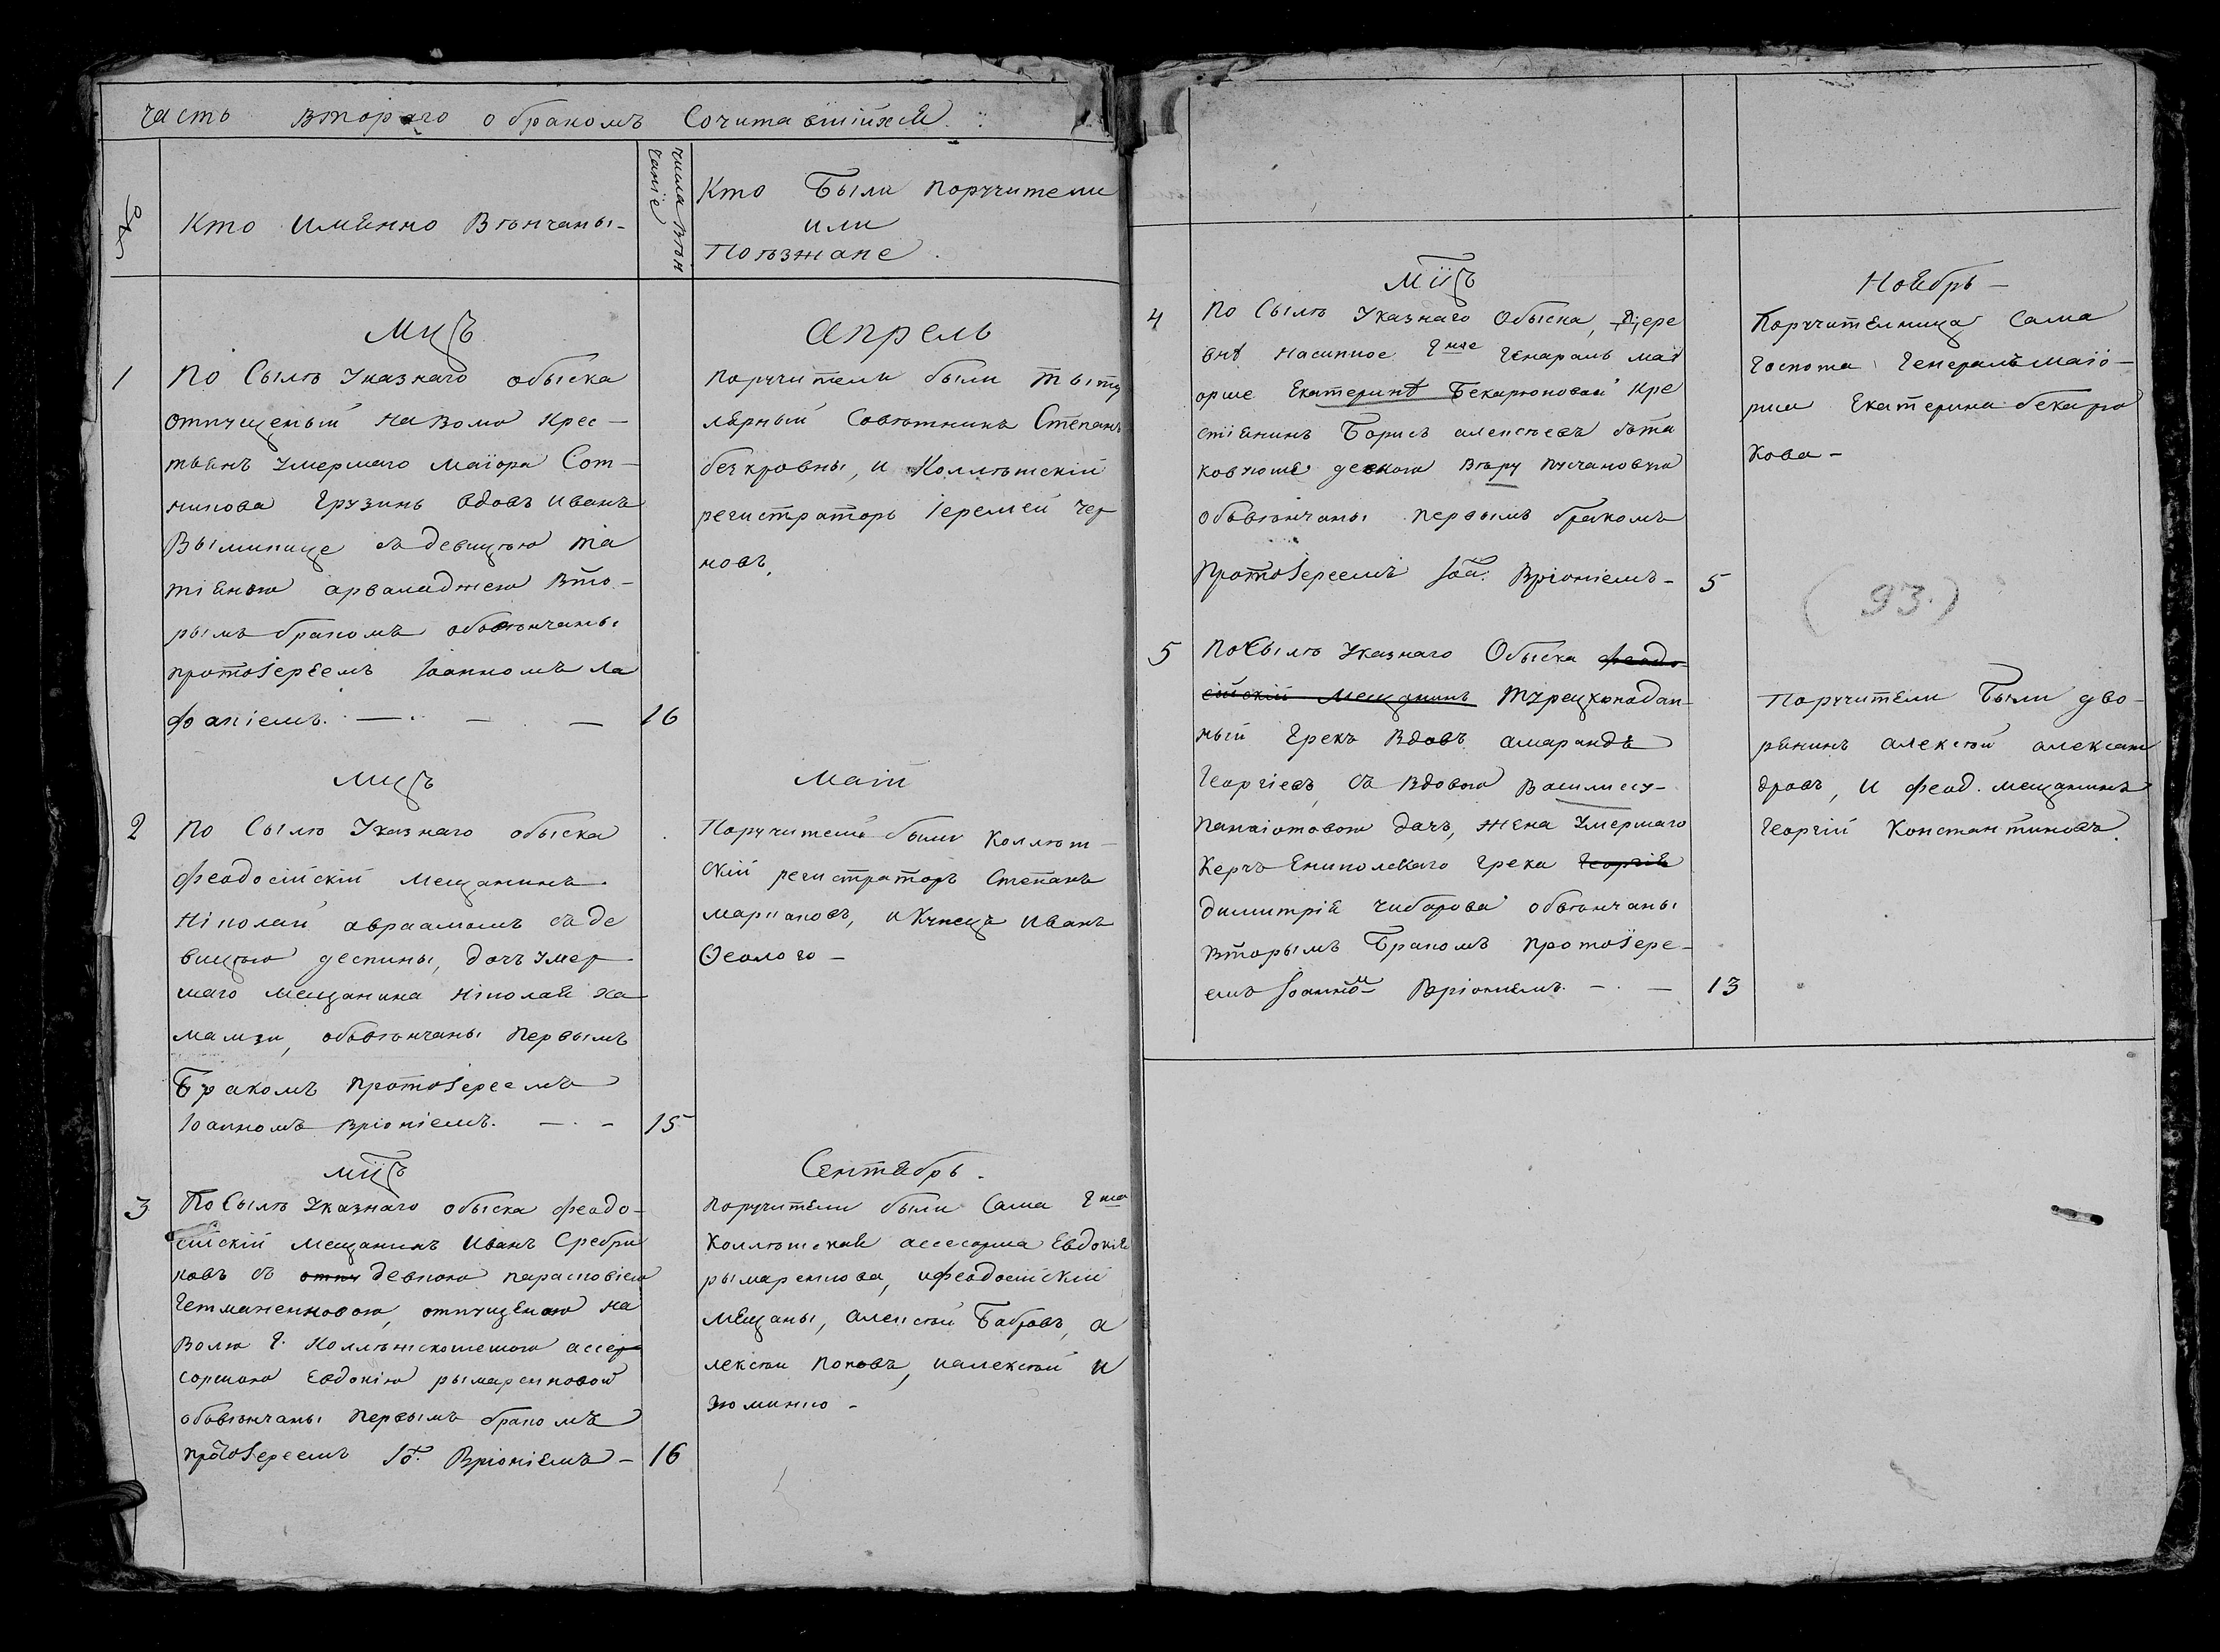 часть второго о бракомъ Сочитавшiйхся.
№
Кто имянно Вѣнчаны-
числа Вѣн
чанiе
Кто Были поручители
или
Поѣзжане.
мцъ
апрель
1
По Сылѣ Указнаго обыска
отпущеный на Волю крес-
тьянъ Умершаго маiора Сот-
никова Грузинъ вдовъ иванъ
съ девицею та
тiяною Вто-
рымъ бракомъ обвѣнчаны
протоiереемъ Iоанномъ Ла
фапiемъ. —. — . —
16
поручители были тыту
лярный Совѣтникъ Степанъ
безкровны, и Коллѣтскiй
регистраторъ Iеремей чер
новъ.
мцъ
маiй
2
по Сылѣ Указнаго обыска
феодосiйскiй мещанинъ
нiколай авраамомъ съ де
вицею деспины, дочъ умер
шаго мещанина нiколая ха
мамзи, обвѣнчаны первымъ
Бракомъ протоiереемъ
Iоанномъ Врiонiемъ. —. –
15
Поручители были Коллѣт-
скiй регистраторъ Степанъ
маргаповъ, и Купецъ иванъ
Ѳеолого –
мцъ
Сентябрь.
3
По Сылѣ Указнаго обыска феодо-
сiйскiй мещанинъ иванъ Сребри
ковъ съ отпу девкою парасковiею
Гетманенковою, отпущеною на
Волю Г. ассер
соршою Евдокiю рымаренковой
обвѣнчаны первымъ бракомъ
протоiереемъ Iо. Врiонiемъ –
16
поручители были Сама Гжа
Коллѣтская ассесорша Евдокiя
рымаренкова, и феодосiйскiй
мещаны, алексѣй Бобровъ, а
лексѣй поповъ, и алексѣй и
зюминко –
мцъ
Ноябрь –
4
по Сылѣ Указнаго Обыска, дере
внѣ Насипное Гжѣ Генералъ маi
орше Екатеринѣ Бекарюковой кре
стiянинъ Борисъ алексѣевъ съ та
ковуюже девкою вѣру
обвѣнчаны первымъ бракомъ
протоiереемъ Iоа. Врiонiемъ –
5
Поручителница сама
госпожа Генералъ маiо-
рша Екатерина бекарю
кова –
(93.)
5
По Сылѣ Указнаго Обыска феодо
сiйскiй мещанинъ турецкоподан-
ный Грекъ Вдовъ амарандъ
Георгiевъ, съ Вдовою Василису-
панаiотовою дочъ, жена Умершаго
Керчъ Ениполскаго грека Георгiя
димитрiя чибарова обвѣнчаны
вторымъ Бракомъ протоiере-
емъ Iоанномъ Врiонiемъ. –. —
13
Поручители Были дво-
рянинъ алексѣй алексан
дровъ, и феод. мещанинъ
Георгiй Константиновъ.